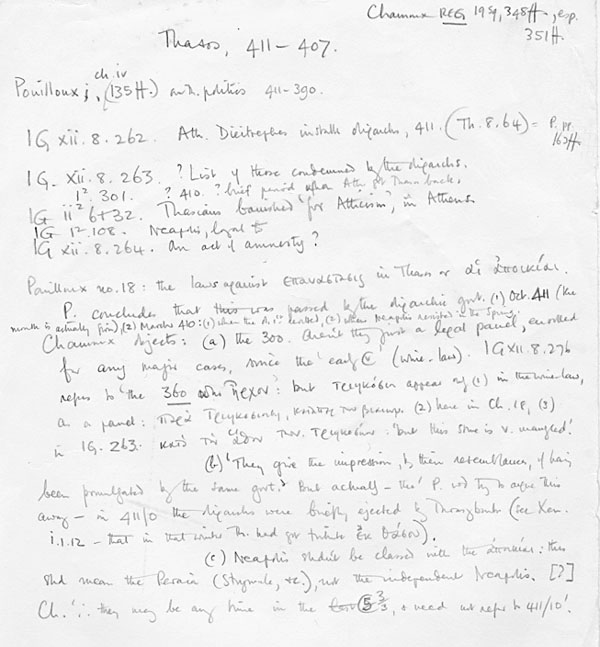 Chamoux REG 1959, 348ff, esp.
351ff.
Thasos, 411–407.
Pouilloux i, ch. iv (135ff.) on Th. politics 411–390.
IG xii.8.262. Ath. Dieitrephes installs oligarchs, 411. (Th. 8.64) = P. pp.
162ff
IG xii.8.263. ? List of those condemned by the oligarchs.
I². 301. ? 410. ? brief period when Ath. got Thasos back.
IG ii² 6+32. Thasians banished 'for Atticism', in Athens.
IG I².108. Neapolis, loyal to
IG xii.8.264. An act of amnesty?
Pouilloux no. 18: the laws against ἐπαναστάσεις in Thasos or αἱ ἀποικίαι.
P. concludes that this was passed by the oligarchic govt. (1) Oct. 411 (the
month is actually given), (2) March 410: (1) when the revolted, (2) when Neapolis resisted in the Spring.
Chamoux objects: (a) the 300. Aren't they just a legal panel, enrolled
for any major cases, since the early (wine-law). IG XII.8.276
refers to 'the 360': but τριηκόσιοι appear only (1) in the wine-law,
as a panel: (2) here in Ch. 18, (3)
in IG. 263. κατὰ τὸν τῶν τριηκοσίων: but this stone is v. mangled!
(b) 'They give the impression, by their resemblance, of having
been promulgated by the same govt.' But actually – tho' P. wd try to argue this
away – in 411/0 the oligarchs were briefly ejected by Thrasybulus (see Xen.
i.1.12 – that in that winter Th. had got tribute ἐκ Θάσου).
(c) Neapolis shdn't be classed with the ἀποικίαι: this
shd mean the Peraia (Stryme, &c.), not the independent Neapolis. [?]
Ch. '∴ they may be any time in the last 5 ⅔, & need not refer to 411/10'.